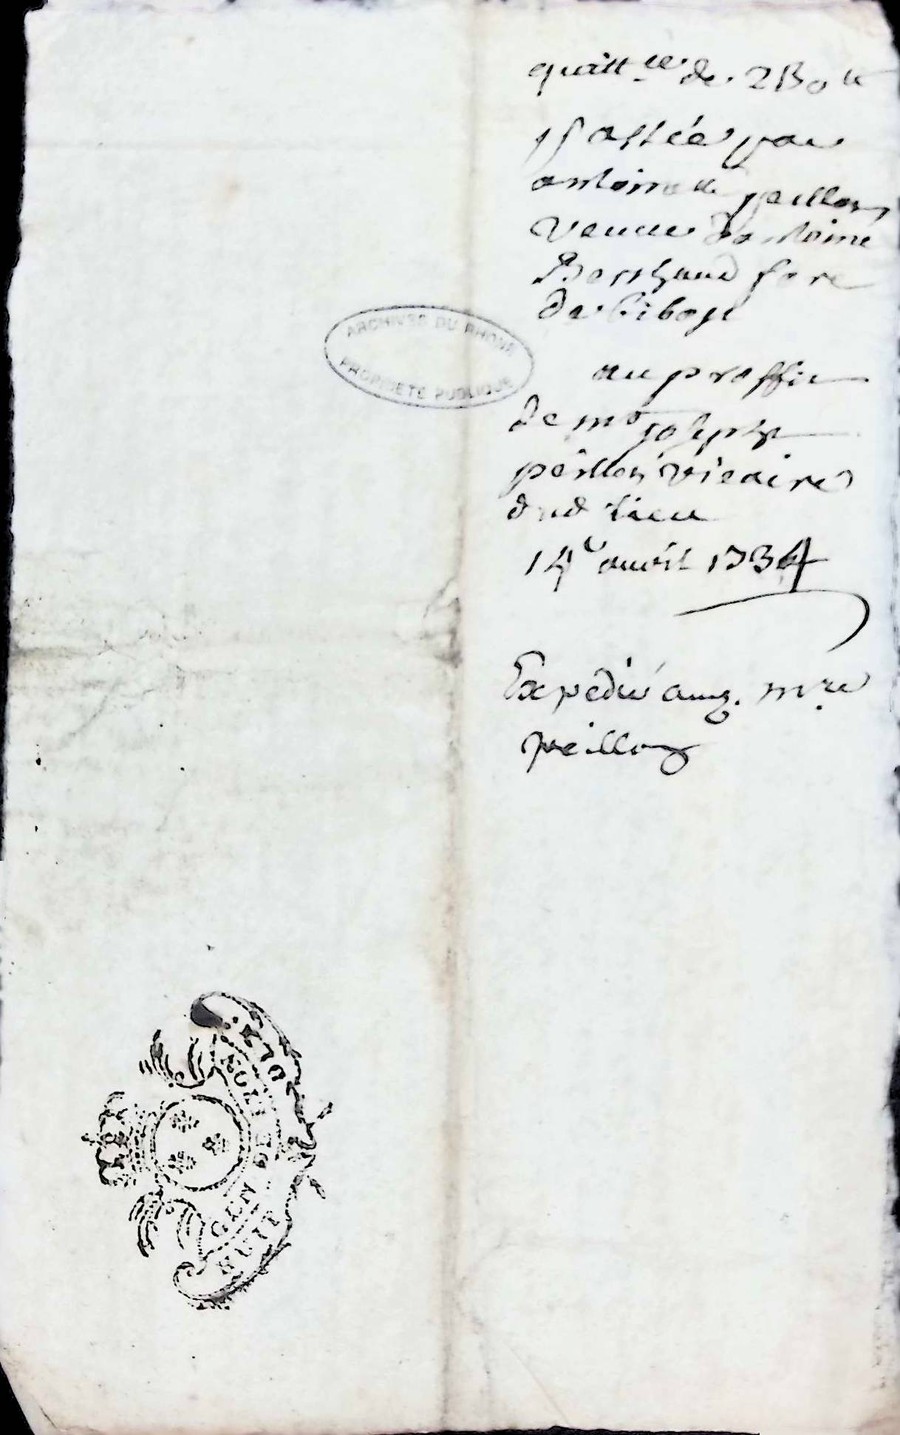 quitt.ce de 230 ll
passée par
antoinette peillon
veuve d'antoine
au proffit
de m.e joseph
peillon vicaire
dud lieu
14e avril 1734
Expédié aud. m.re
peillon
ARCHIVES DU RHONE
PROPRIÉTÉ PUBLIQUE
GEN DE
HUIT